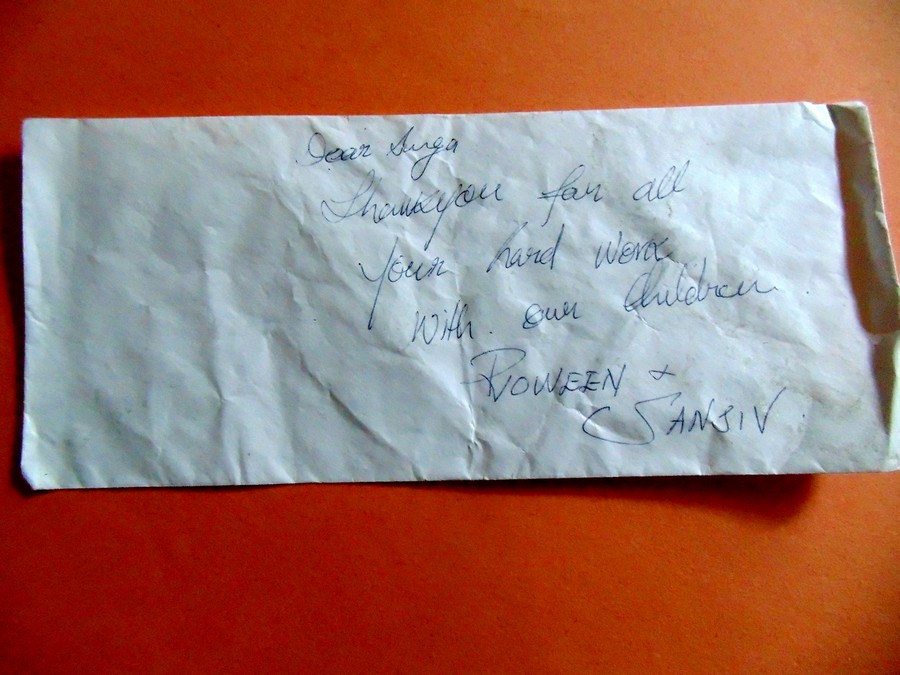 Dear Durga
Thankyou for all
Your hard work
With. our Children.
&
SANJIV.